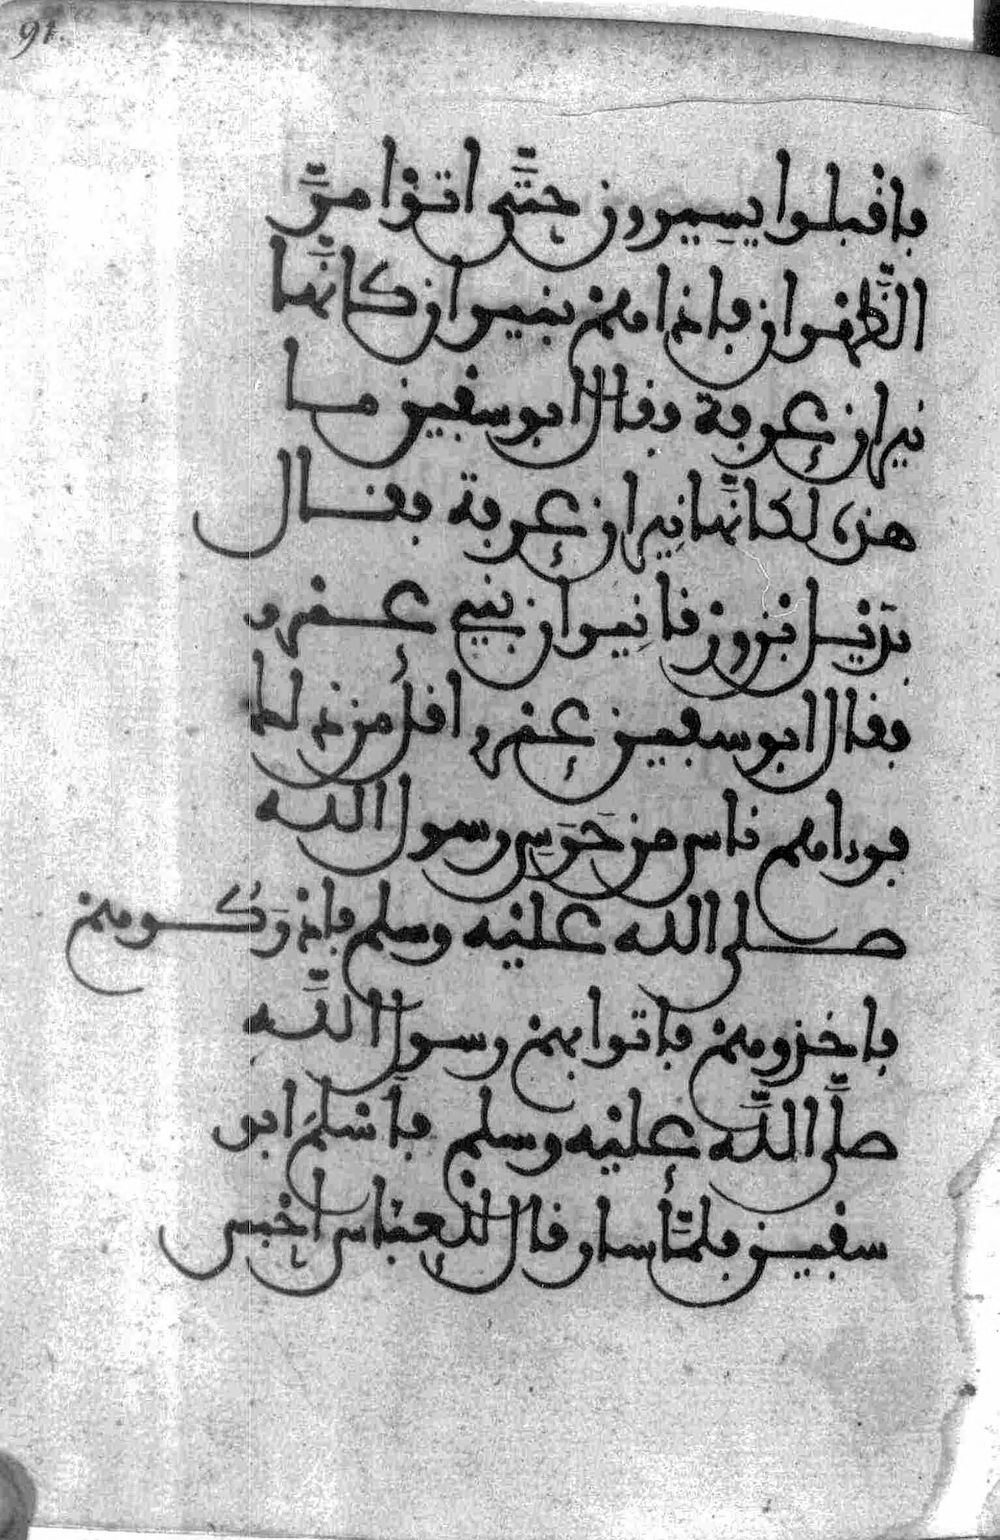 91.
فاقبلوا يسيرون حتى اتوا مر
الظهران فاذا هم بنيران كانها
نيران عرفة فقال ابو سفين ما
هذه لكانها نيران عرفة فقال
بديل بن ورقا نيران بني عمرو
فقال ابو سفين عمرو اقل من ذلك
فرءاهم ناس من حرس رسول الله
صلى الله عليه وسلم فادركوهم
فاخذوهم فاتوا بهم رسول الله
صلى الله عليه وسلم فاسلم ابو
سفين فلما سار قال للعباس احبس